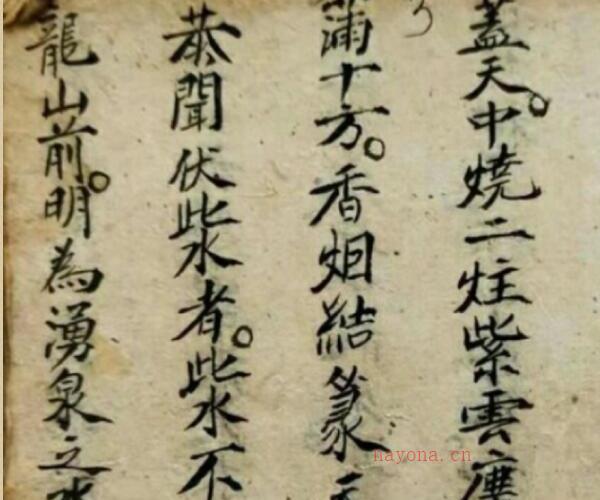 蓋天。中燒二炷紫雲
滿十方。香烟結篆
恭聞伏此水者。此水不
龍山前。明為湧泉之
hayona.cn